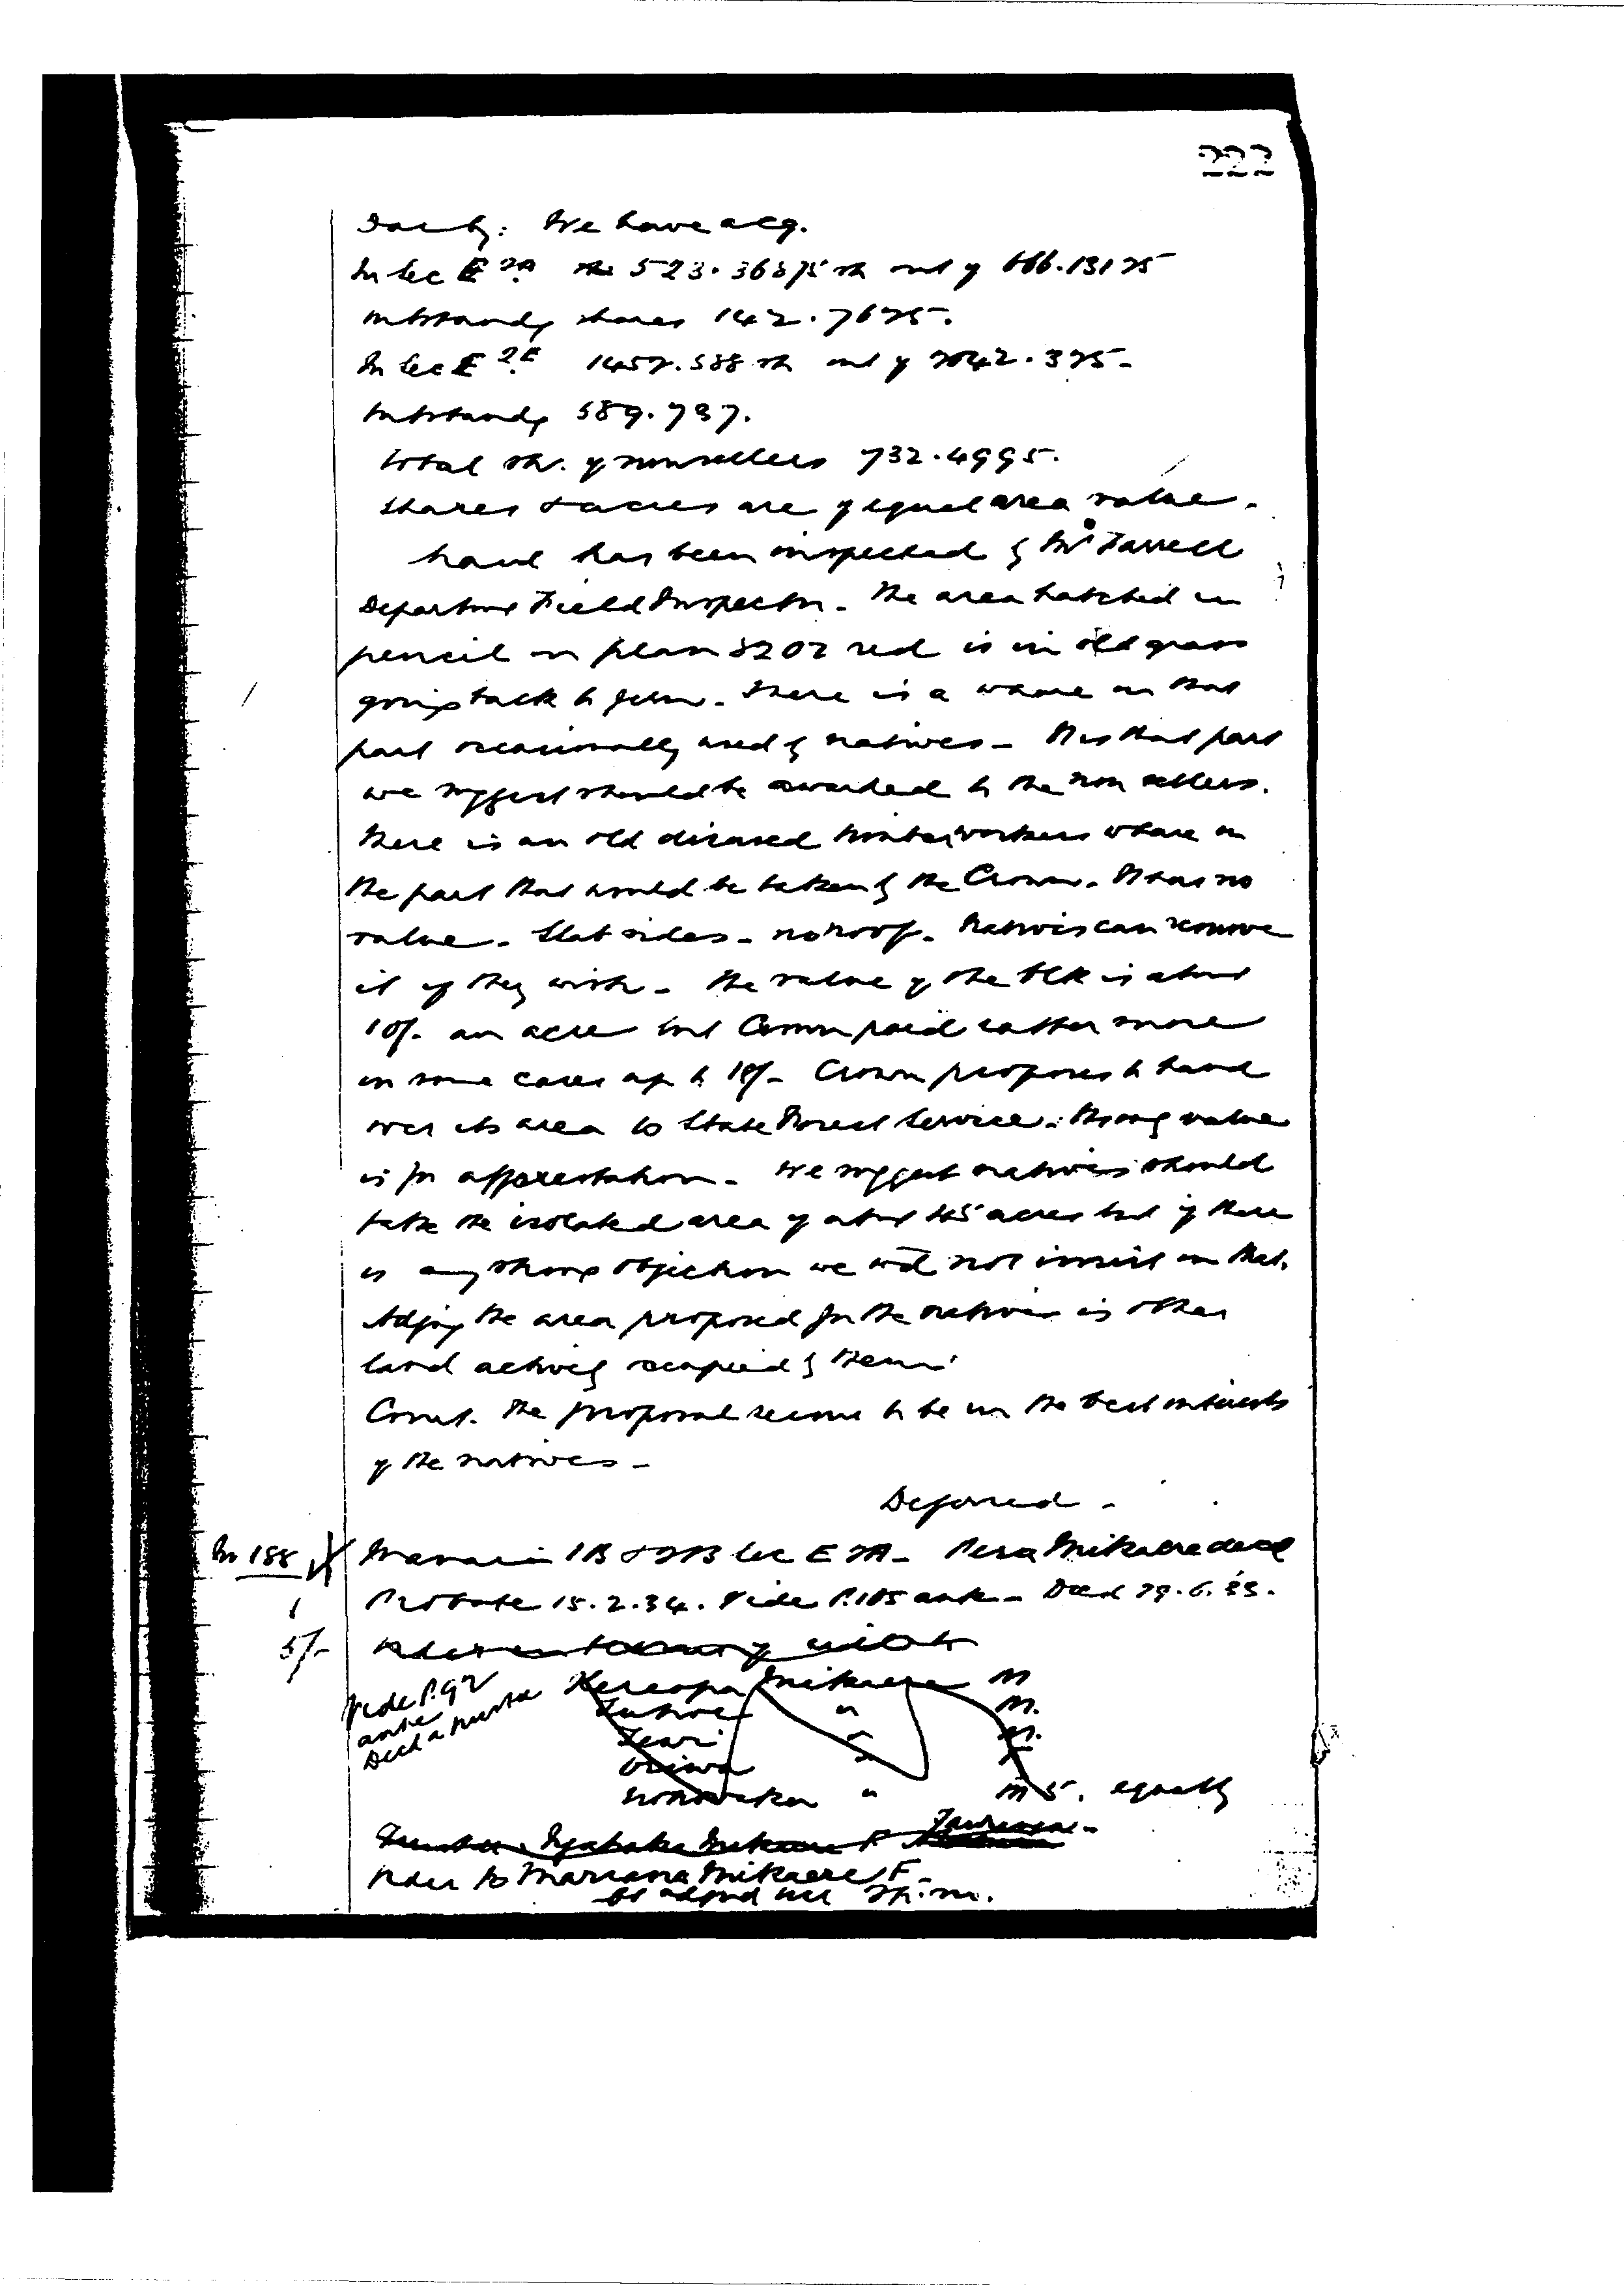 222
Darby: We have acq.
In Sec E 2A the 523.36875 sh out of 666.13125
Outstandg shares 142.7625.
In Sec E 2E 1452.588 sh out of 2042.325-
Outstandg 589.737.
total sh. of nonsellers 732.4995.
Shares & acres are of equal area value.
Land has been inspected by Mr Farrell
Departmt Field Inspector. The area hatched in
pencil on plan 5202 red is in old grass
going back to fern. There is a whare on that
part occasionally used by natives - It is that part
we suggest should be awarded to the non sellers.
There is an old disused timberworkers whare on
the part that would be taken by the Crown. It has no
value. Slab sides - no roof. Natives can remove
it if they wish - The value of the Blk is about
10/- an acre but Crown paid rather more
in some cases up to 18/- Crown proposes to hand
over its area to State Forest Service. Its only value
is for afforestation. We suggest natives should
take the isolated area of about 45 acres but if there
is any strong objection we wd not insist on that.
Adjng the area proposed for the natives is other
land actively occupied by them.
Court. The proposal seems to be in the best interests
of the natives -
Deferred -
In 188 1B & 2B Sec E 2A - Pera Mikaere decd
Probate 15.2.34. Vide P.105 ante - Died 29.6.33.
5/-
Vide P.92 Kereopa Mikaere M
ante " M.
Decl " M.
Oriwa "
" M 5. equally
Order to Mariana Mikaere F.